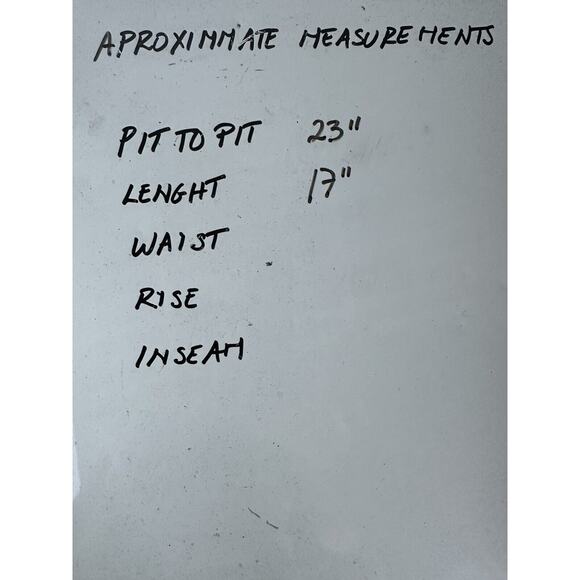 APROXIMMATE MEASUREMENTS
PIT TO PIT 23"
LENGHT 17"
WAIST
RISE
INSEAM